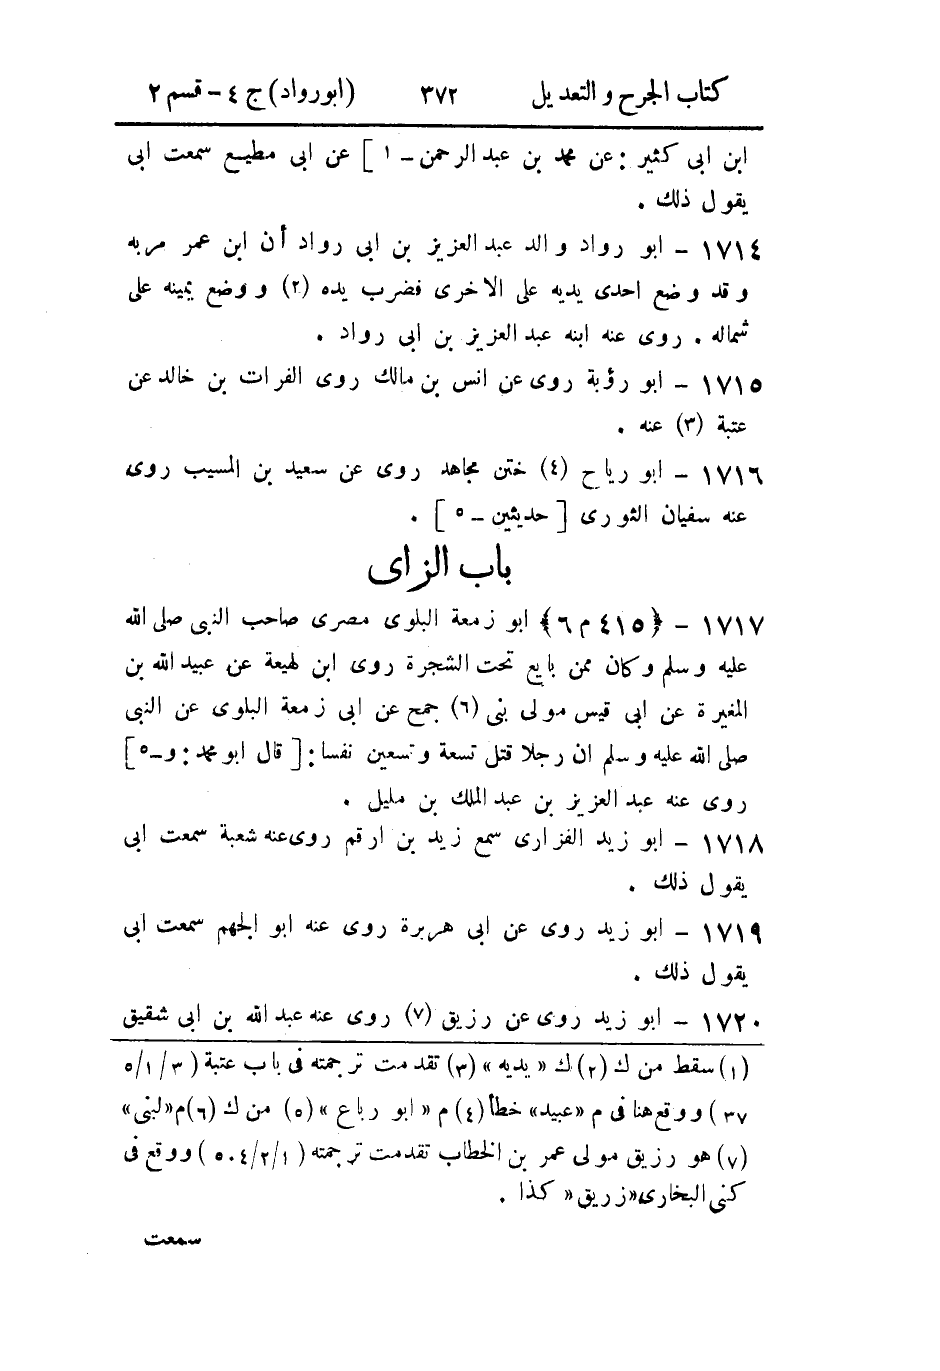 كتاب الجرح والتعديل ٣٧٢ (ابورواد) ج ٤ - قسم ٢
ابن ابى كثير : عن محمد بن عبد الرحمن - ١ ] عن ابى مطيع سمعت ابى
يقول ذلك .
١٧١٤ - ابو رواد والد عبد العزيز بن ابى رواد أن ابن عمر مر به
وقد وضع احدى يديه على الاخرى فضرب يده (٢) ووضع يمينه على
شماله . روى عنه ابنه عبد العزيز بن ابى رواد .
١٧١٥ - ابو رؤبة روى عن انس بن مالك روى الفرات بن خالد عن
عتبة (٣) عنه .
١٧١٦ - ابو رياح (٤) ختن مجاهد روى عن سعيد بن المسيب روى
عنه سفيان الثورى [ حديثين - ٥ ] .
باب الزاى
١٧١٧ - ﴿٤١٥ م ٦﴾ ابو زمعة البلوى مصرى صاحب النبى صلى الله
عليه وسلم وكان ممن بايع تحت الشجرة روى ابن لهيعة عن عبيد الله بن
المغيرة عن ابى قيس مولى بنى (٦) جمح عن ابى زمعة البلوى عن النبى
صلى الله عليه وسلم ان رجلا قتل تسعة وتسعين نفسا : [ قال ابو محمد : و-٥ ]
روى عنه عبد العزيز بن عبد الملك بن مليل .
١٧١٨ - ابو زيد الفزارى سمع زيد بن ارقم روى عنه شعبة سمعت ابى
يقول ذلك .
١٧١٩ - ابو زيد روى عن ابى هريرة روى عنه ابو الجهم سمعت ابى
يقول ذلك .
١٧٢٠ - ابو زيد روى عن رزيق (٧) روى عنه عبد الله بن ابى شقيق
(١) سقط من ك (٢) ك « يديه » (٣) تقدمت ترجمته فى باب عتبة ( ٣/١/٥
٣٧ ) ووقع هنا فى م «عبيد» خطأ (٤) م « ابو رباع » (٥) من ك (٦) م «لبنى»
(٧) هو رزيق مولى عمر بن الخطاب تقدمت ترجمته ( ٥٠٤/٢/١ ) ووقع فى
كنى البخارى «زريق» كذا .
سمعت